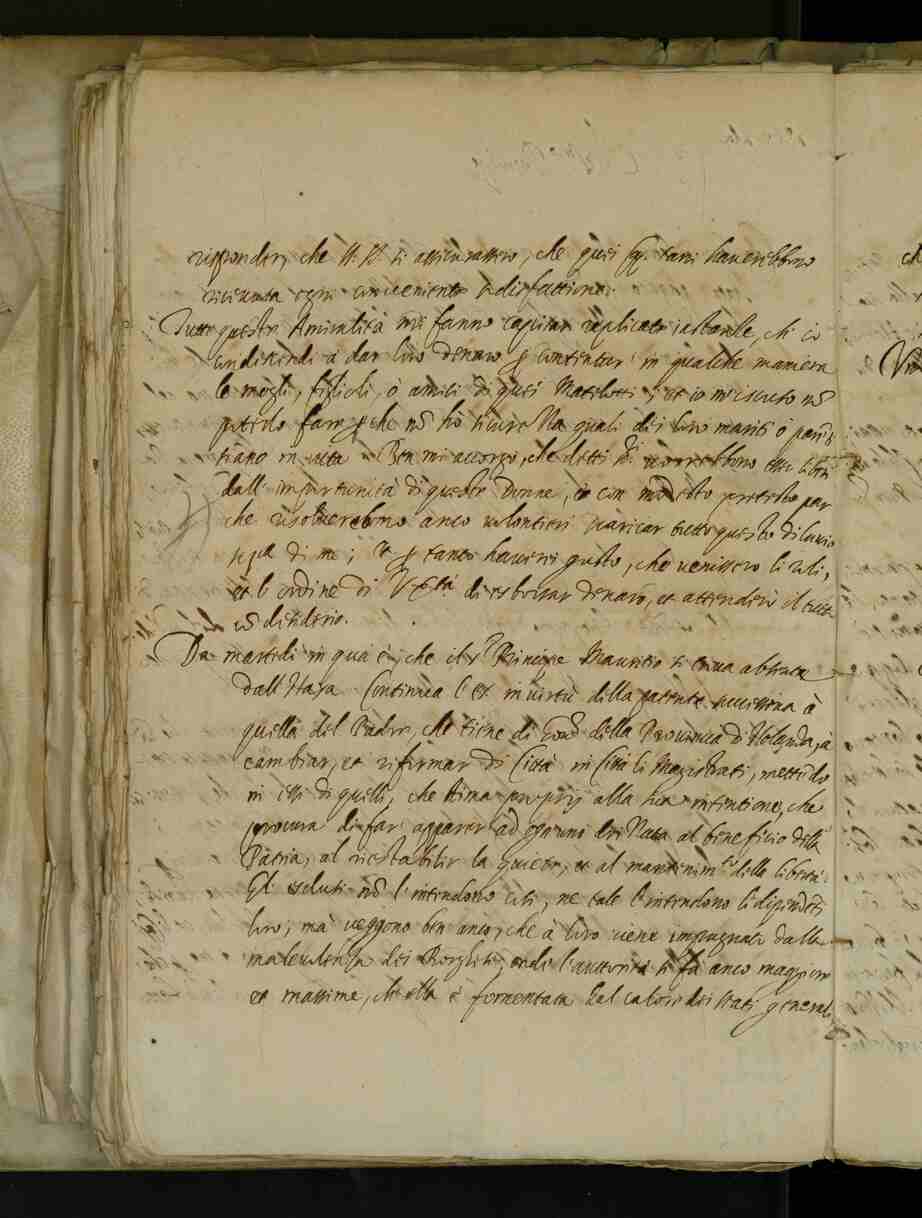 risponder, che VV. SS. si assicurassero, che quei Sig.ri tutti haverebbono
ricevuta ogni conveniente sodisfattione.
Tutte queste Amiralità mi fanno capitar replicate instanze, ch'io
condiscendi à dar loro denaro per contentar in qualche maniera
le mogli, figlioli, ò amici di quei Marilotti; et io m'iscuso nō
poterlo fare perche nō ho sicurezza quali dei loro mariti ò parēti
siano in vita. Ben mi accorgo, che detti SS.ri vorrebbono esser liberi
dall'importunità di queste Donne, et con modesto pretesto par
che risolverebbono anco volontieri scaricar tutto questo diluvio
sopra di me; et per tanto haverei gusto, che venissero li roli,
et l'ordine di V. Ser.tà di esborsar denaro, et attenderò il tutto
cō desiderio.
Da martedi in qua è, che il S.r Principe Mauritio si trova absente
dall'Haya. Continua l'Ecc. in virtù della patente successiva à
quella del Padre, che tiene di Gov.re della Provincia di Holanda, à
cambiar, et riformar di Città in Città li Magistrati, mettēdo
in essi di quelli, che stima proprij alla sua intentione, che
procura di far apparer ad ogniuno drizzata al beneficio della
Patria, al ristabilir la quiete, et al mantenim.to della libertà.
Gli esclusi nō l'intendono così, ne tale l'intendono li dipendēti
loro, mà veggono ben anco, che à loro viene impugnata dalla
malevolenza dei Borghesi, onde l'auttorità si fà anco maggiore
et massime, ch'ella è fomentata dal calore dei Stati generali